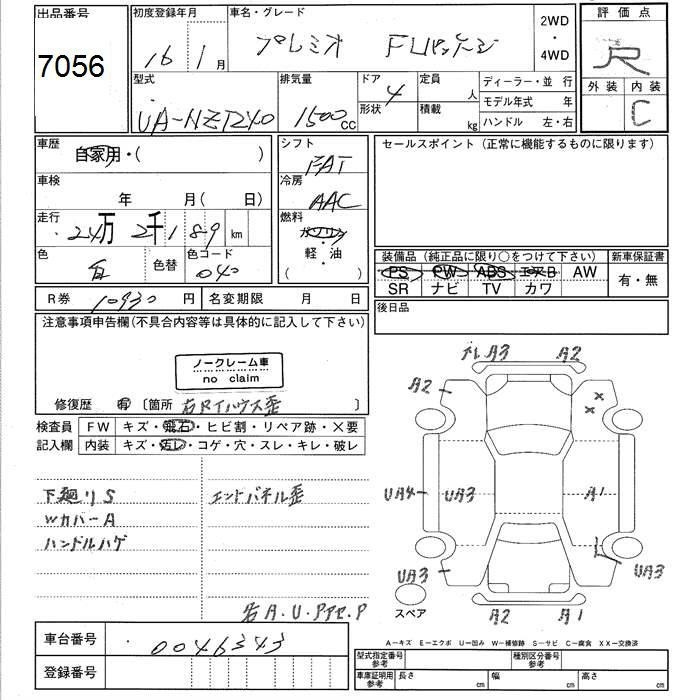 出品番号
7056
初度登録年月
16年1月
車名・グレード
プレミオ Fリパッケージ
2WD
・
4WD
評価点
R
外装 内装
C
型式
UA-NZT240
排気量
1500cc
ドア
4
形状
定員
人
積載
kg
ディーラー・並行
モデル年式 年
ハンドル 左・右
車歴
自家用・( )
車検
年 月( 日)
走行
24万2千189km
色
白
色替
色コード
040
シフト
FAT
冷房
AAC
燃料
ガソリン
軽・油
( )
セールスポイント(正常に機能するものに限ります)
装備品(純正品に限り○をつけて下さい)
PS PW ABS エアB AW
SR ナビ TV カワ
新車保証書
有・無
R券 10930円
名変期限 月 日
後日品
注意事項申告欄(不具合内容等は具体的に記入して下さい)
ノークレーム車
no claim
修復歴 有 〔箇所 右Rインハウス歪 〕
検査員
記入欄
FW キズ・飛石・ヒビ割・リペア跡・×要
内装 キズ・汚レ・コゲ・穴・スレ・キレ・破レ
下廻リS
WカバーA
ハンドルハゲ
エンドパネル歪
A3 A2
A2
×
×
UA4 UA3 A1
UA3 UA3
スペア
A2 A1
A−キズ E−エクボ U−凹み W−補修跡 S−サビ C−腐食 XX−交換済
車台番号
0046343
登録番号
型式指定番号
参考
種別区分番号
参考
車庫証明用
参考
長さ cm 幅 cm 高さ cm